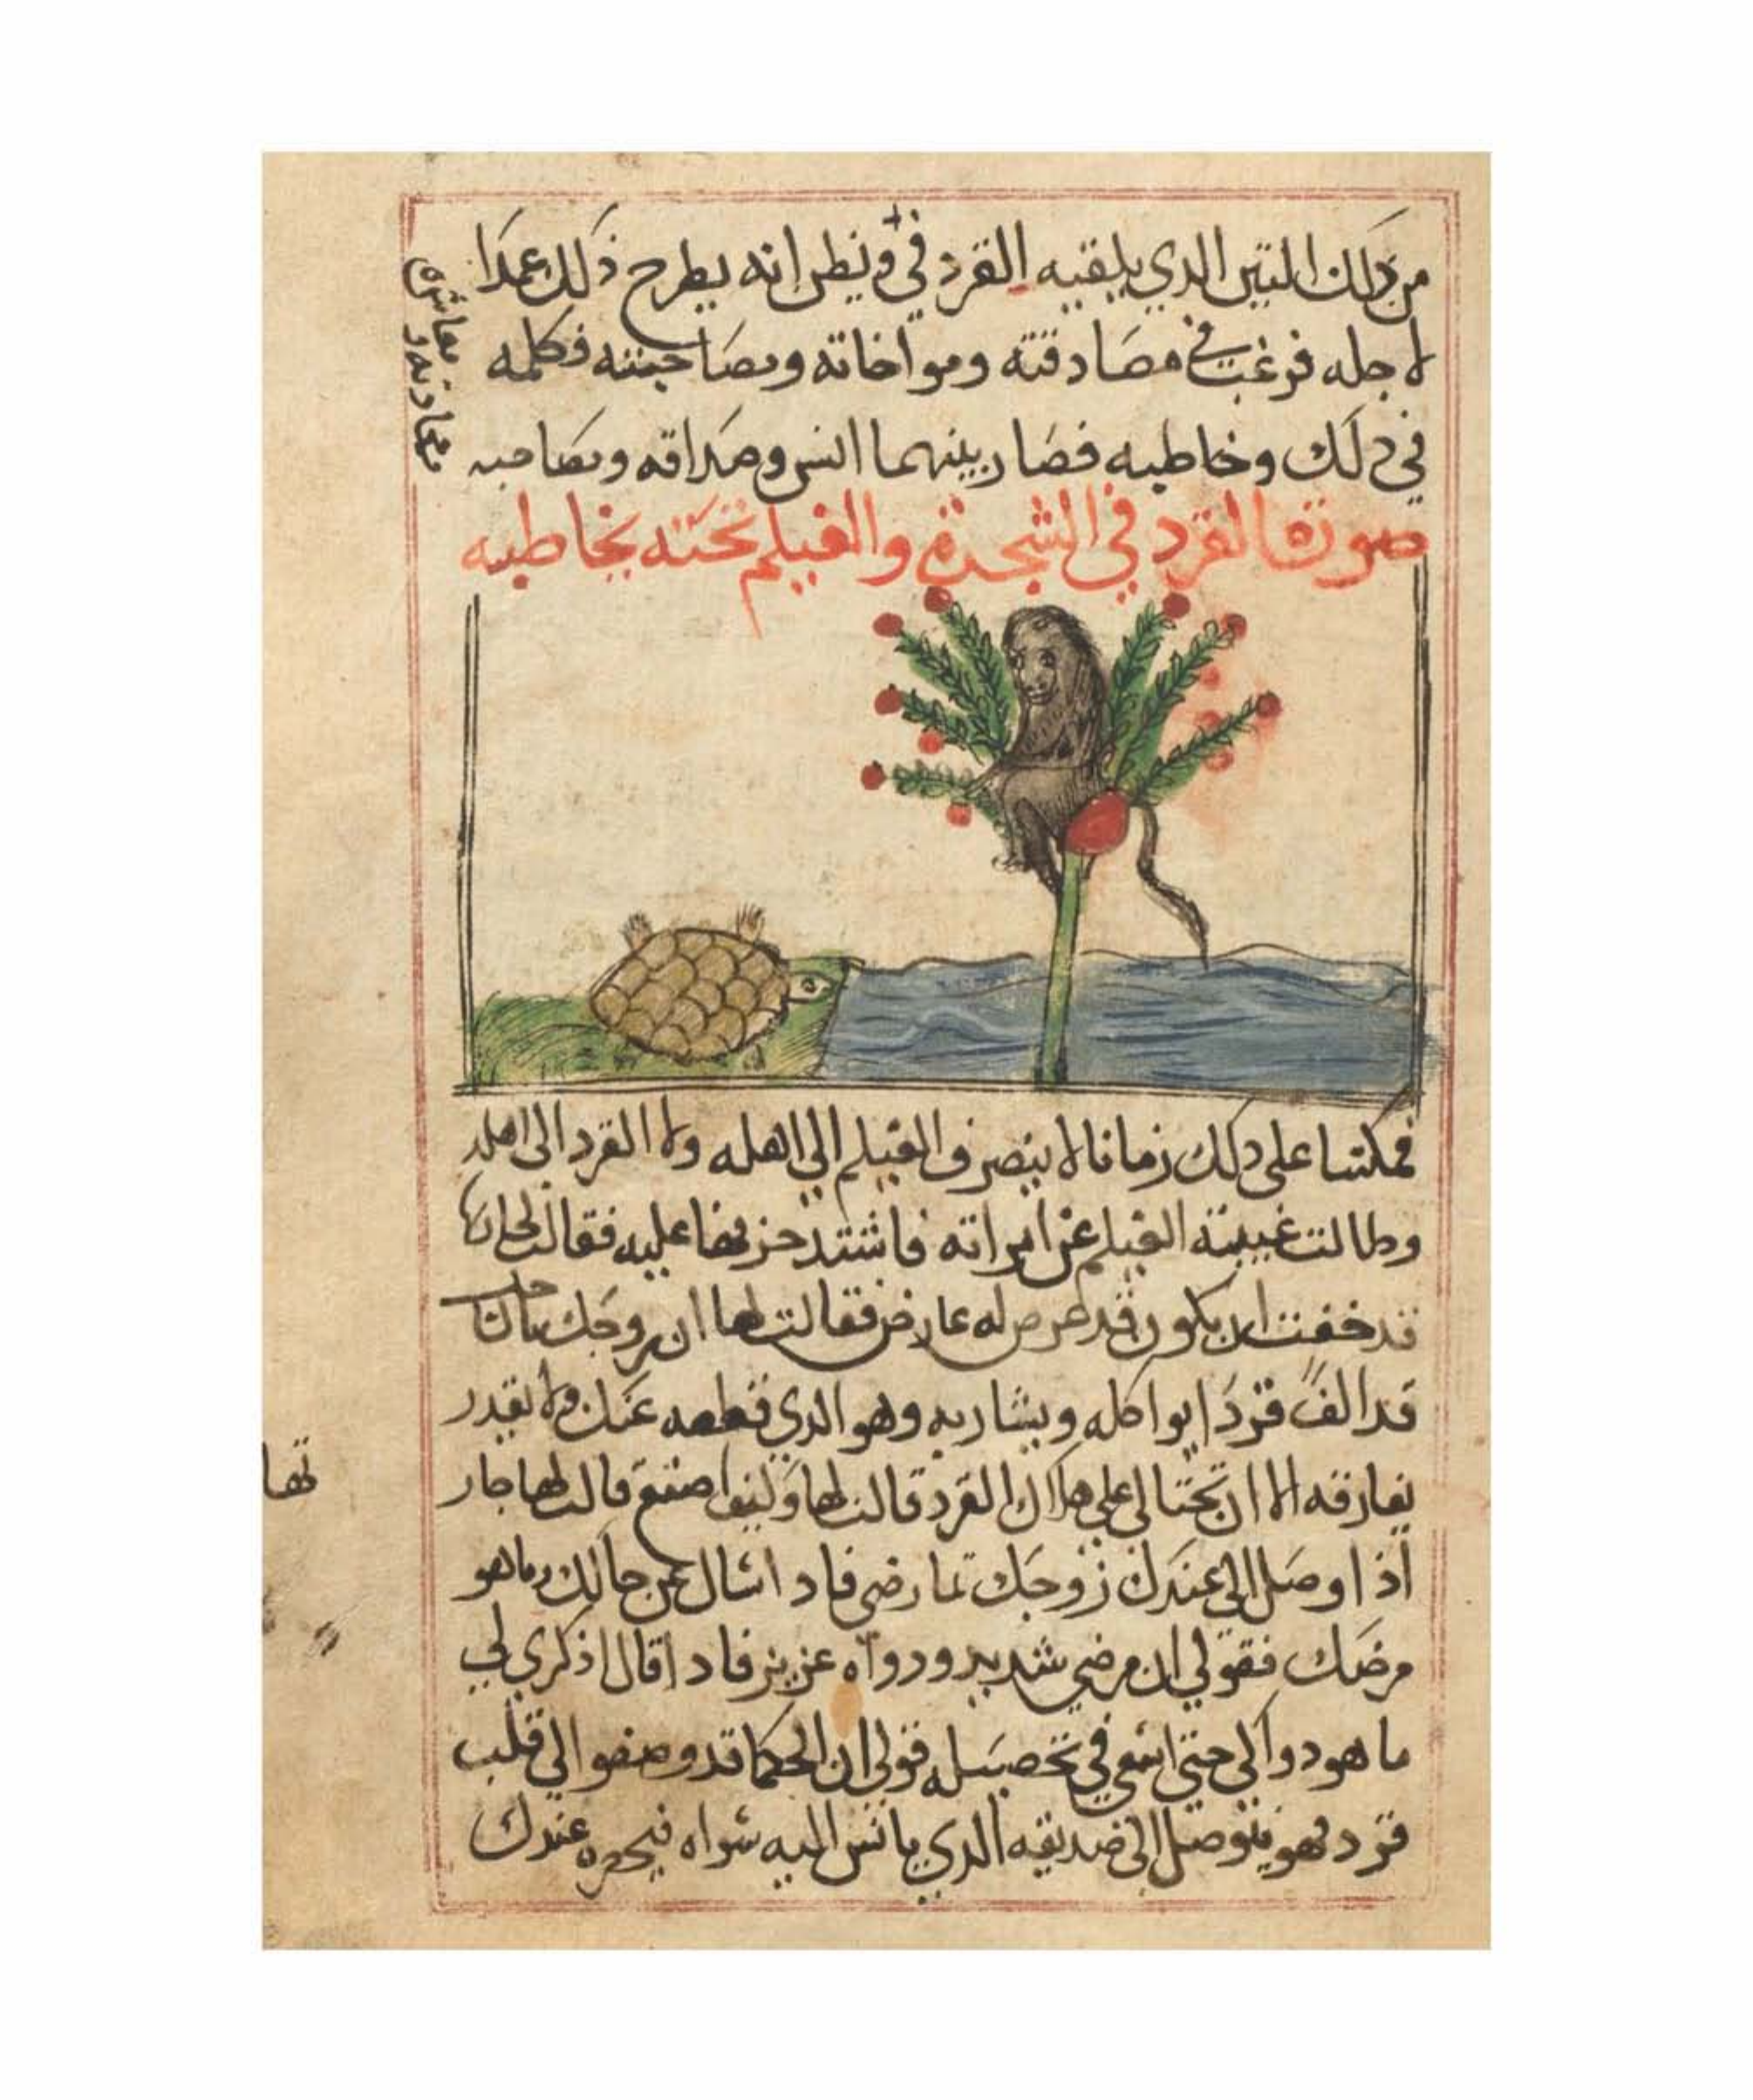 من ذلك التين الدي يلقيه القرد في ويظن انه يطرح ذلك عمدا
لاجله فرغب في مصادقته ومواخاته ومصاحبته فكلمه
في ذلك وخاطبه فصار بينهما انس وصداقه ومصاحبه
صورة القرد في الشجرة والغيلم تحته يخاطبه
فمكثا على ذلك زمانا لا ينصرف الغيلم الي اهله ولا القرد الى اهله
وطالت غيبته الغيلم عن امراته فاشتد حزنها عليه فقالت لجارتها
قد خفت ان يكون قد عرض له عارض فقالت لها ان زوجك
قد الف قردا يواكله ويشاربه وهو الدي قطعه عنك ولا يقدر
يفارقه الا ان تحتالي على هلاك القرد قالت لها وكيف اصنع قالت لها جار
تها
اذا وصل الى عندك زوجك تمارضي فادا سال عن حالك وماهو
مرضك فقولي ان مرضي شديد ودواه عزيز فادا قال اذكري لي
ما هو دواكي حتى اسعي في تحصيله قولي ان الحكما قد وصفوا لي قلب
قرد فهو يتوصل الى صديقه الدي يانس اليه سواه فيحضره عندك